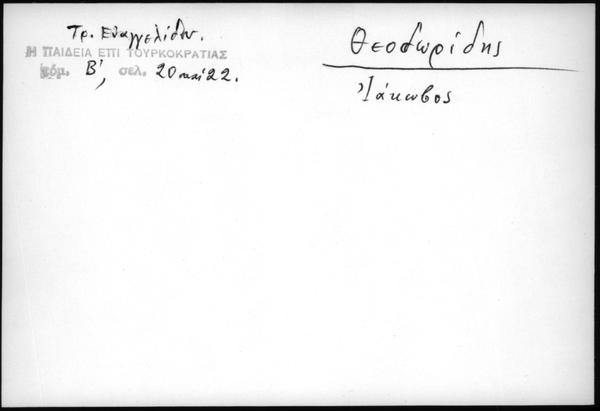 Τρ. Εὐαγγελίδου.
Η ΠΑΙΔΕΙΑ ΕΠΙ ΤΟΥΡΚΟΚΡΑΤΙΑΣ
τόμ. Β', σελ. 20 καί 22.
Θεοδωρίδης
Ἰάκωβος